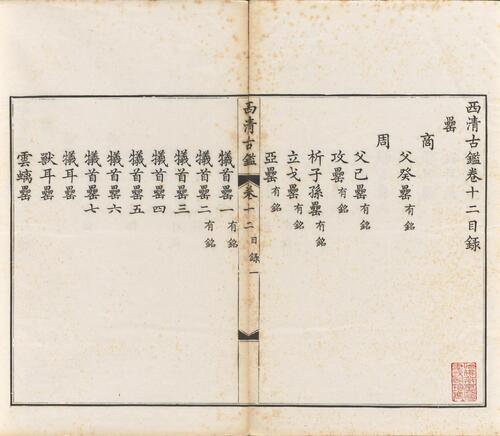 西清古鑑卷十二目録
罍
商
父癸罍有銘
周
父己罍有銘
攻罍有銘
析子孫罍有銘
立戈罍有銘
亞罍有銘
西清古鑑 卷十二目録 一
犧首罍一有銘
犧首罍二有銘
犧首罍三
犧首罍四
犧首罍五
犧首罍六
犧首罍七
犧耳罍
獸耳罍
雲螭罍